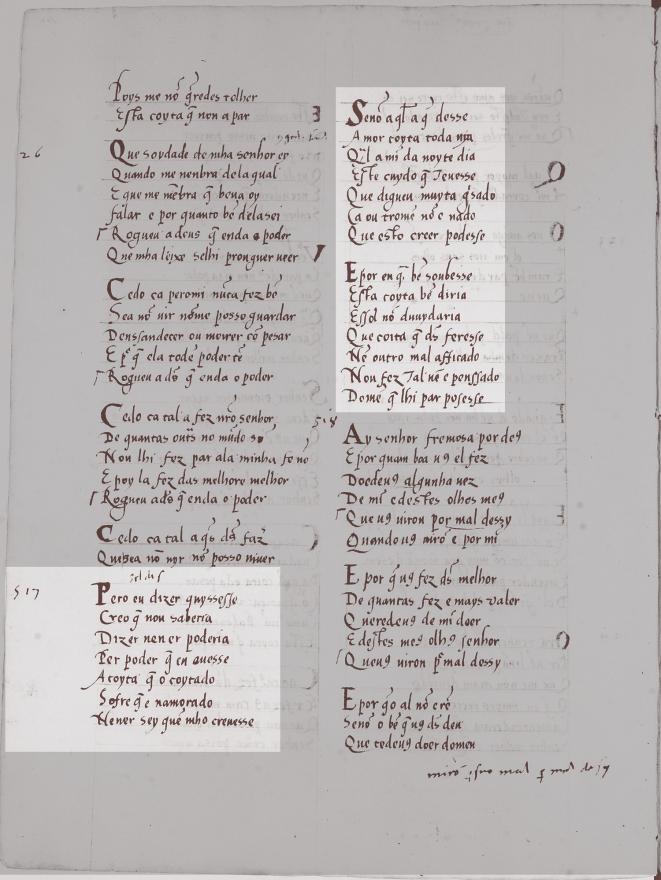 Poys me nõ q̃redes tolher
Esta coyta q̃ non a par
26
Que soydade de mha senhor ey
Quando me nenbra dela qual
E que me nẽbra q̃ bena oy
falar e por quanto bẽ dela sei
Rogueu a deus q̃ end a o poder
Que mha leixe se lhi prouguer ueer
Cedo ca pero mi nũca fez bẽ
Sea nõ uir nõ me posso guardar
Denssandecer ou moirer cõ pesar
E p̃ q̃ ela tod e poder tẽ
Rogueu a ds̃ q̃ end a o poder
Cedo ca tal a fez nr̃o senhor
De quantas outs̃ no mũdo sõ
Non lhi fez par a la minha fe nõ
E poy la fez das melhores melhor
Rogueu a ds̃ q̃ end a o poder
Cedo ca tal a q̃s ds̃ faz̃
Que sea nõ uyr nõ posso uiuer
517
Pero eu dizer quyssesse
Creo q̃ non saberia
Dizer nen er poderia
Per poder q̃ eu ouesse
A coyta q̃ o coytado
Sofre q̃ e namorado
Nen er sey quẽ mho creuesse
Senõ aq̃l a q̃ desse
Amor coyta toda uja
Q̃l a mi da noyte dia
Este cuydo q̃ teuesse
Que digueu muyt a g̃sado
Ca outro me nõ e nado
Que esto creer podesse
E por en q̃ bẽ soubesse
Esta coyta bẽ diria
E ssol nõ duuydaria
Que coita q̃ ds̃ fezesse
Nẽ outro mal afficado
Nou fez tal nẽ e penssado
Dome q̃ lhi par posesse
518
Ay senhor fremosa por deꝯ
E por quam boa uꝯ el fez
Doedeuꝯ algunha uez
De mĩ e destes olhos meꝯ
Que uꝯ uiron por mal dessy
Quando uꝯ uirõ e por mĩ
E por q̃ uꝯ fez ds̃ melhor
De quantas fez e mays ualer
Queredeuꝯ de mĩ doer
E destes meꝯ olhꝯ senhor
Que uꝯ uiron p̃ mal dessy
E por q̃ o al nõ e rẽ
Senõ o bẽ q̃ uꝯ ds̃ deu
Queredeuꝯ doer do meu